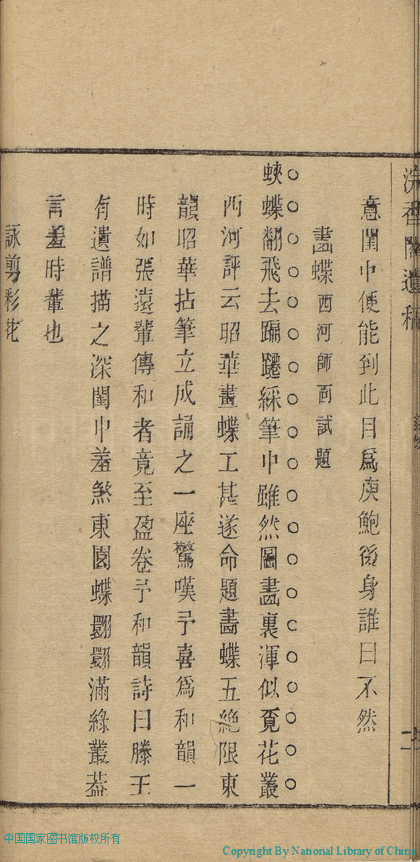 意閨中便能到此目爲庾鮑後身誰曰不然
畫蝶西河師面試題
蛺蝶翻飛去蹁躚綵筆中雖然圖畫裏渾似覓花叢
西河評云昭華畫蝶工甚遂命題畵蝶五絶限東
韻昭華拈筆立成誦之一座驚嘆予喜爲和韻一
時如張遠輩傳和者竟至盈卷予和韻詩曰滕王
有遺譜描之深閨中羞煞東園蝶翾翾滿綠叢葢
言羞時輩也
詠剪彩花
中国国家图书馆版权所有
Copyright By National Library of China